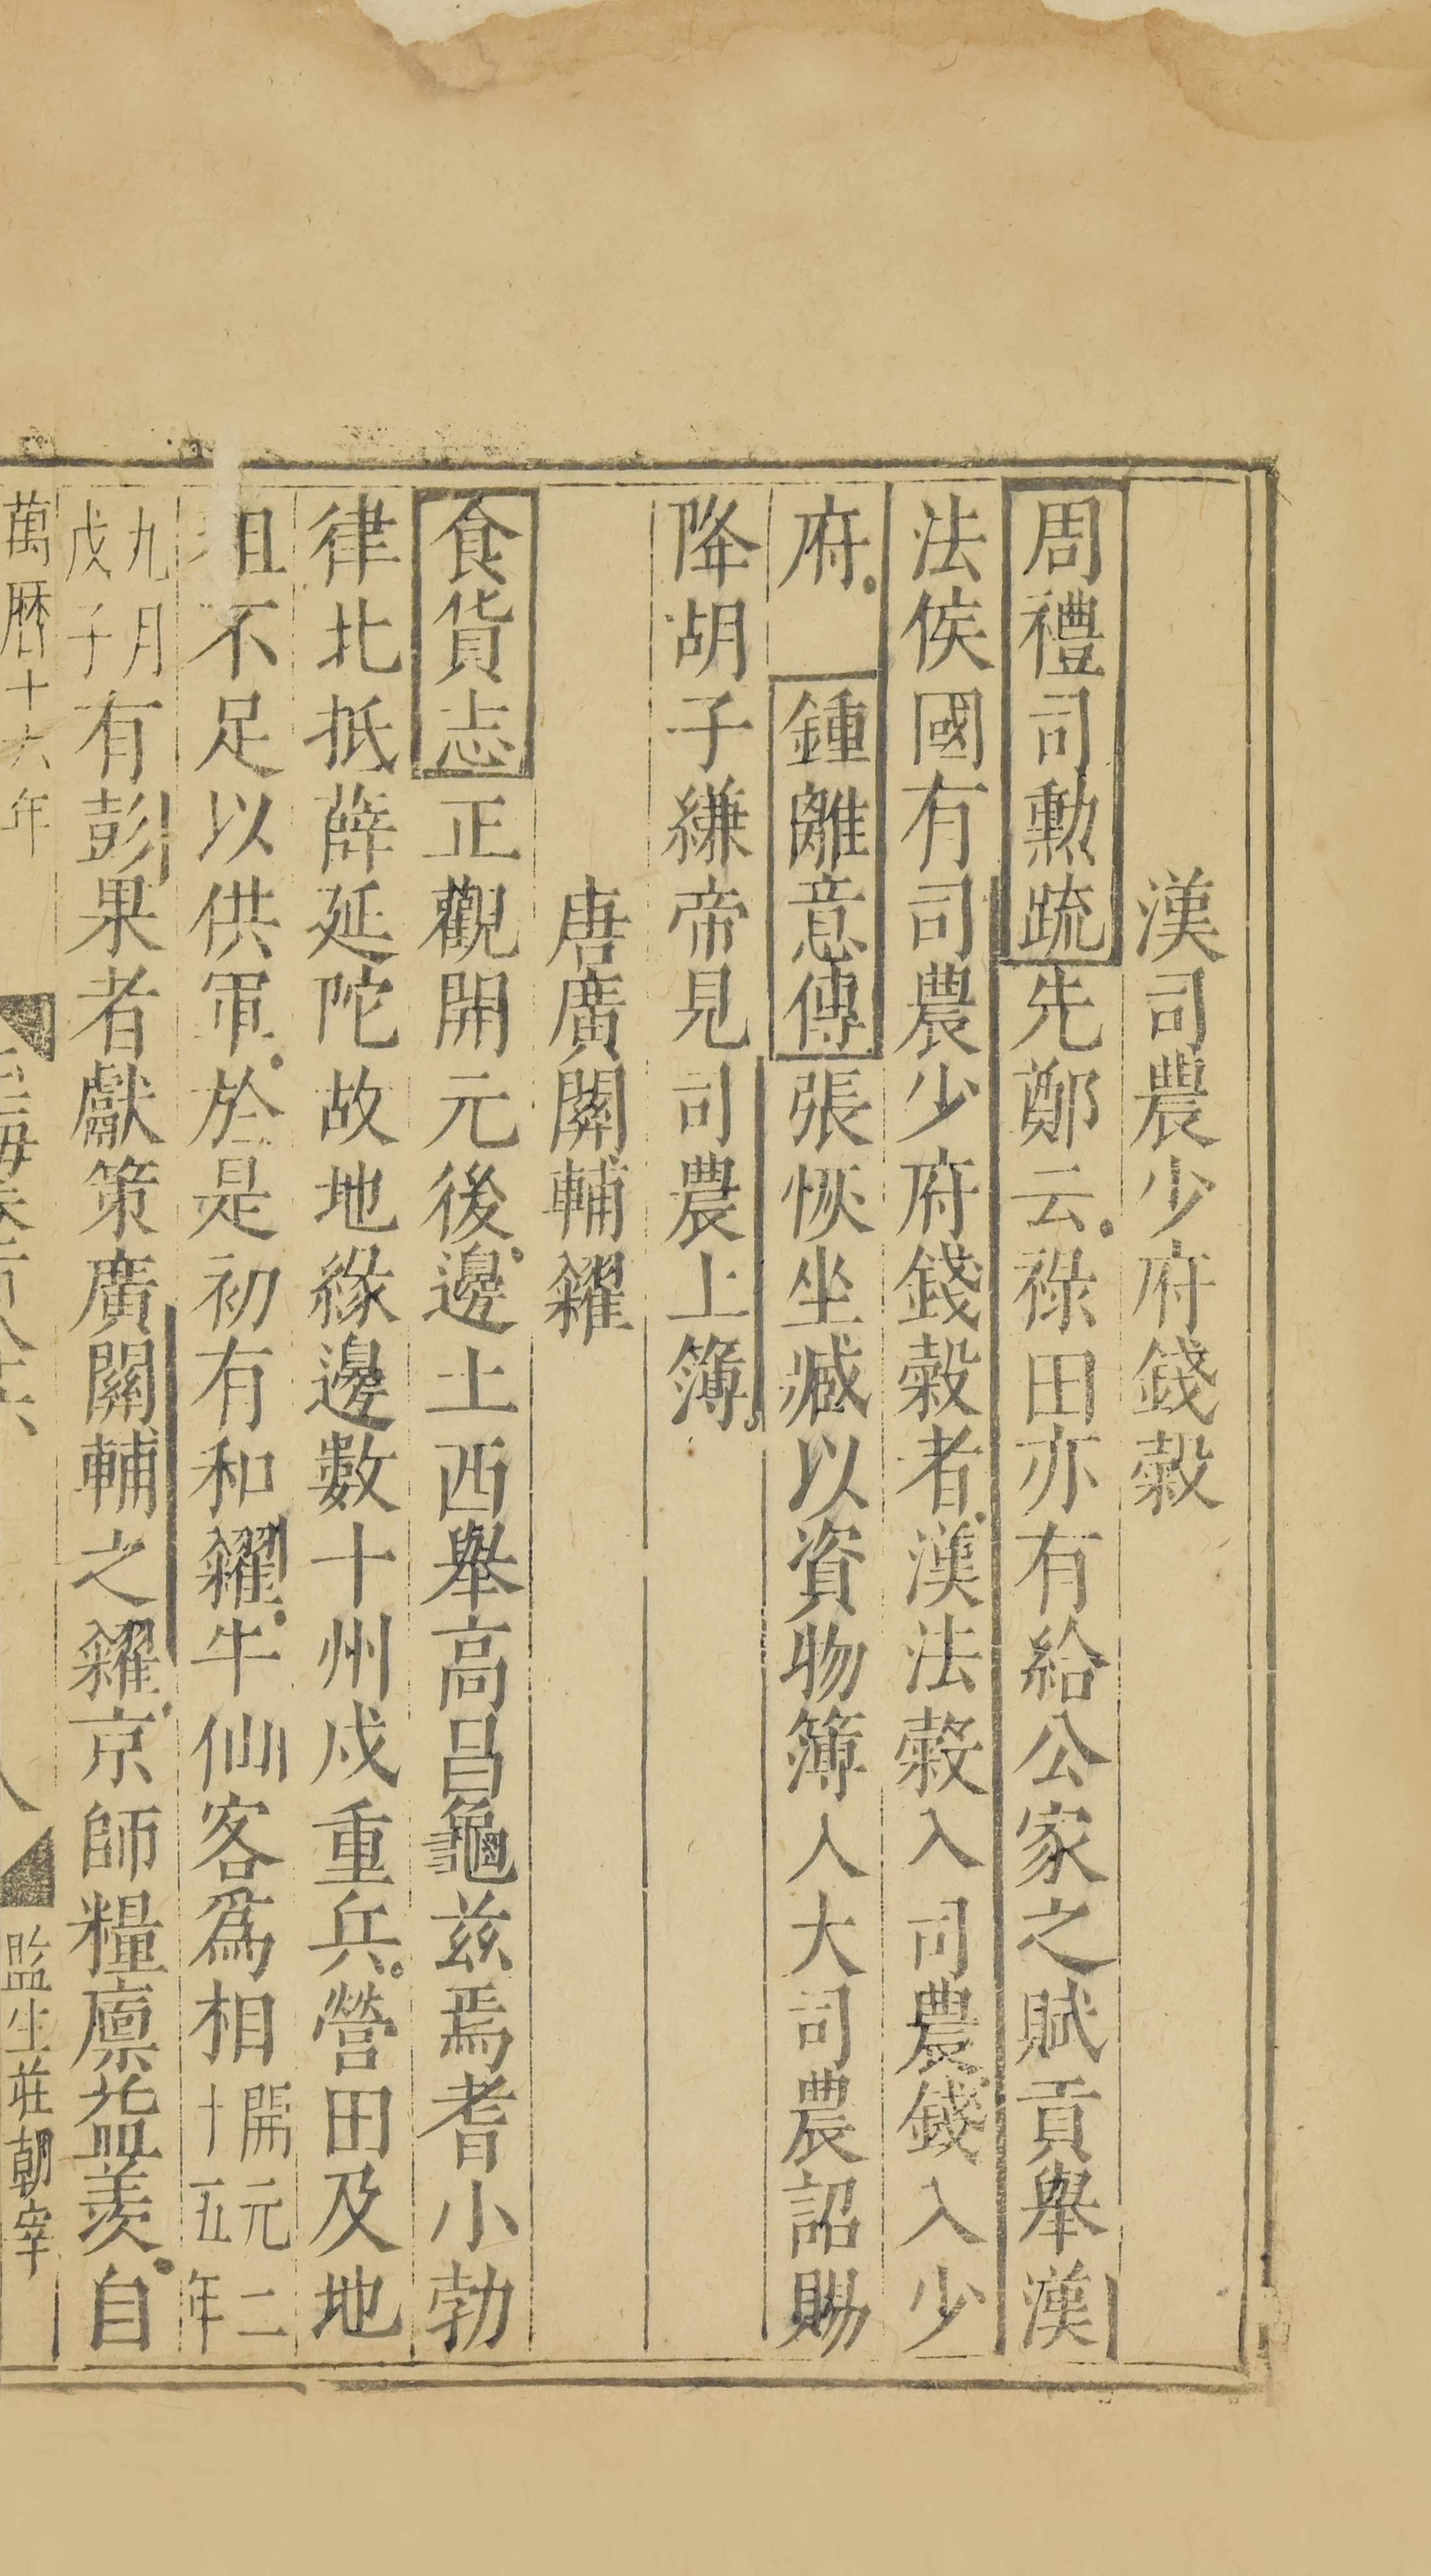 漢司農少府錢穀
周禮司勲䟽先鄭云祿田亦有給公家之賦貢舉漢
法侯國有司農少府錢穀者漢法穀入司農錢入少
府 鍾離意傳張恢坐臧以資物簿入大司農詔賜
降胡子縑帝見司農上簿
唐廣關輔糴
食貨志正觀開元後邊土西舉高昌龜兹焉耆小勃
律北抵薛延陀故地緣邊數十州戍重兵營田及地
租不足以供軍於是初有和糴牛仙客爲相開元二十五年
九月戊子有彭果者獻策廣關輔之糴京師糧廪益羨自
萬曆十六年 玉海卷百八十六 監生莊朝宰